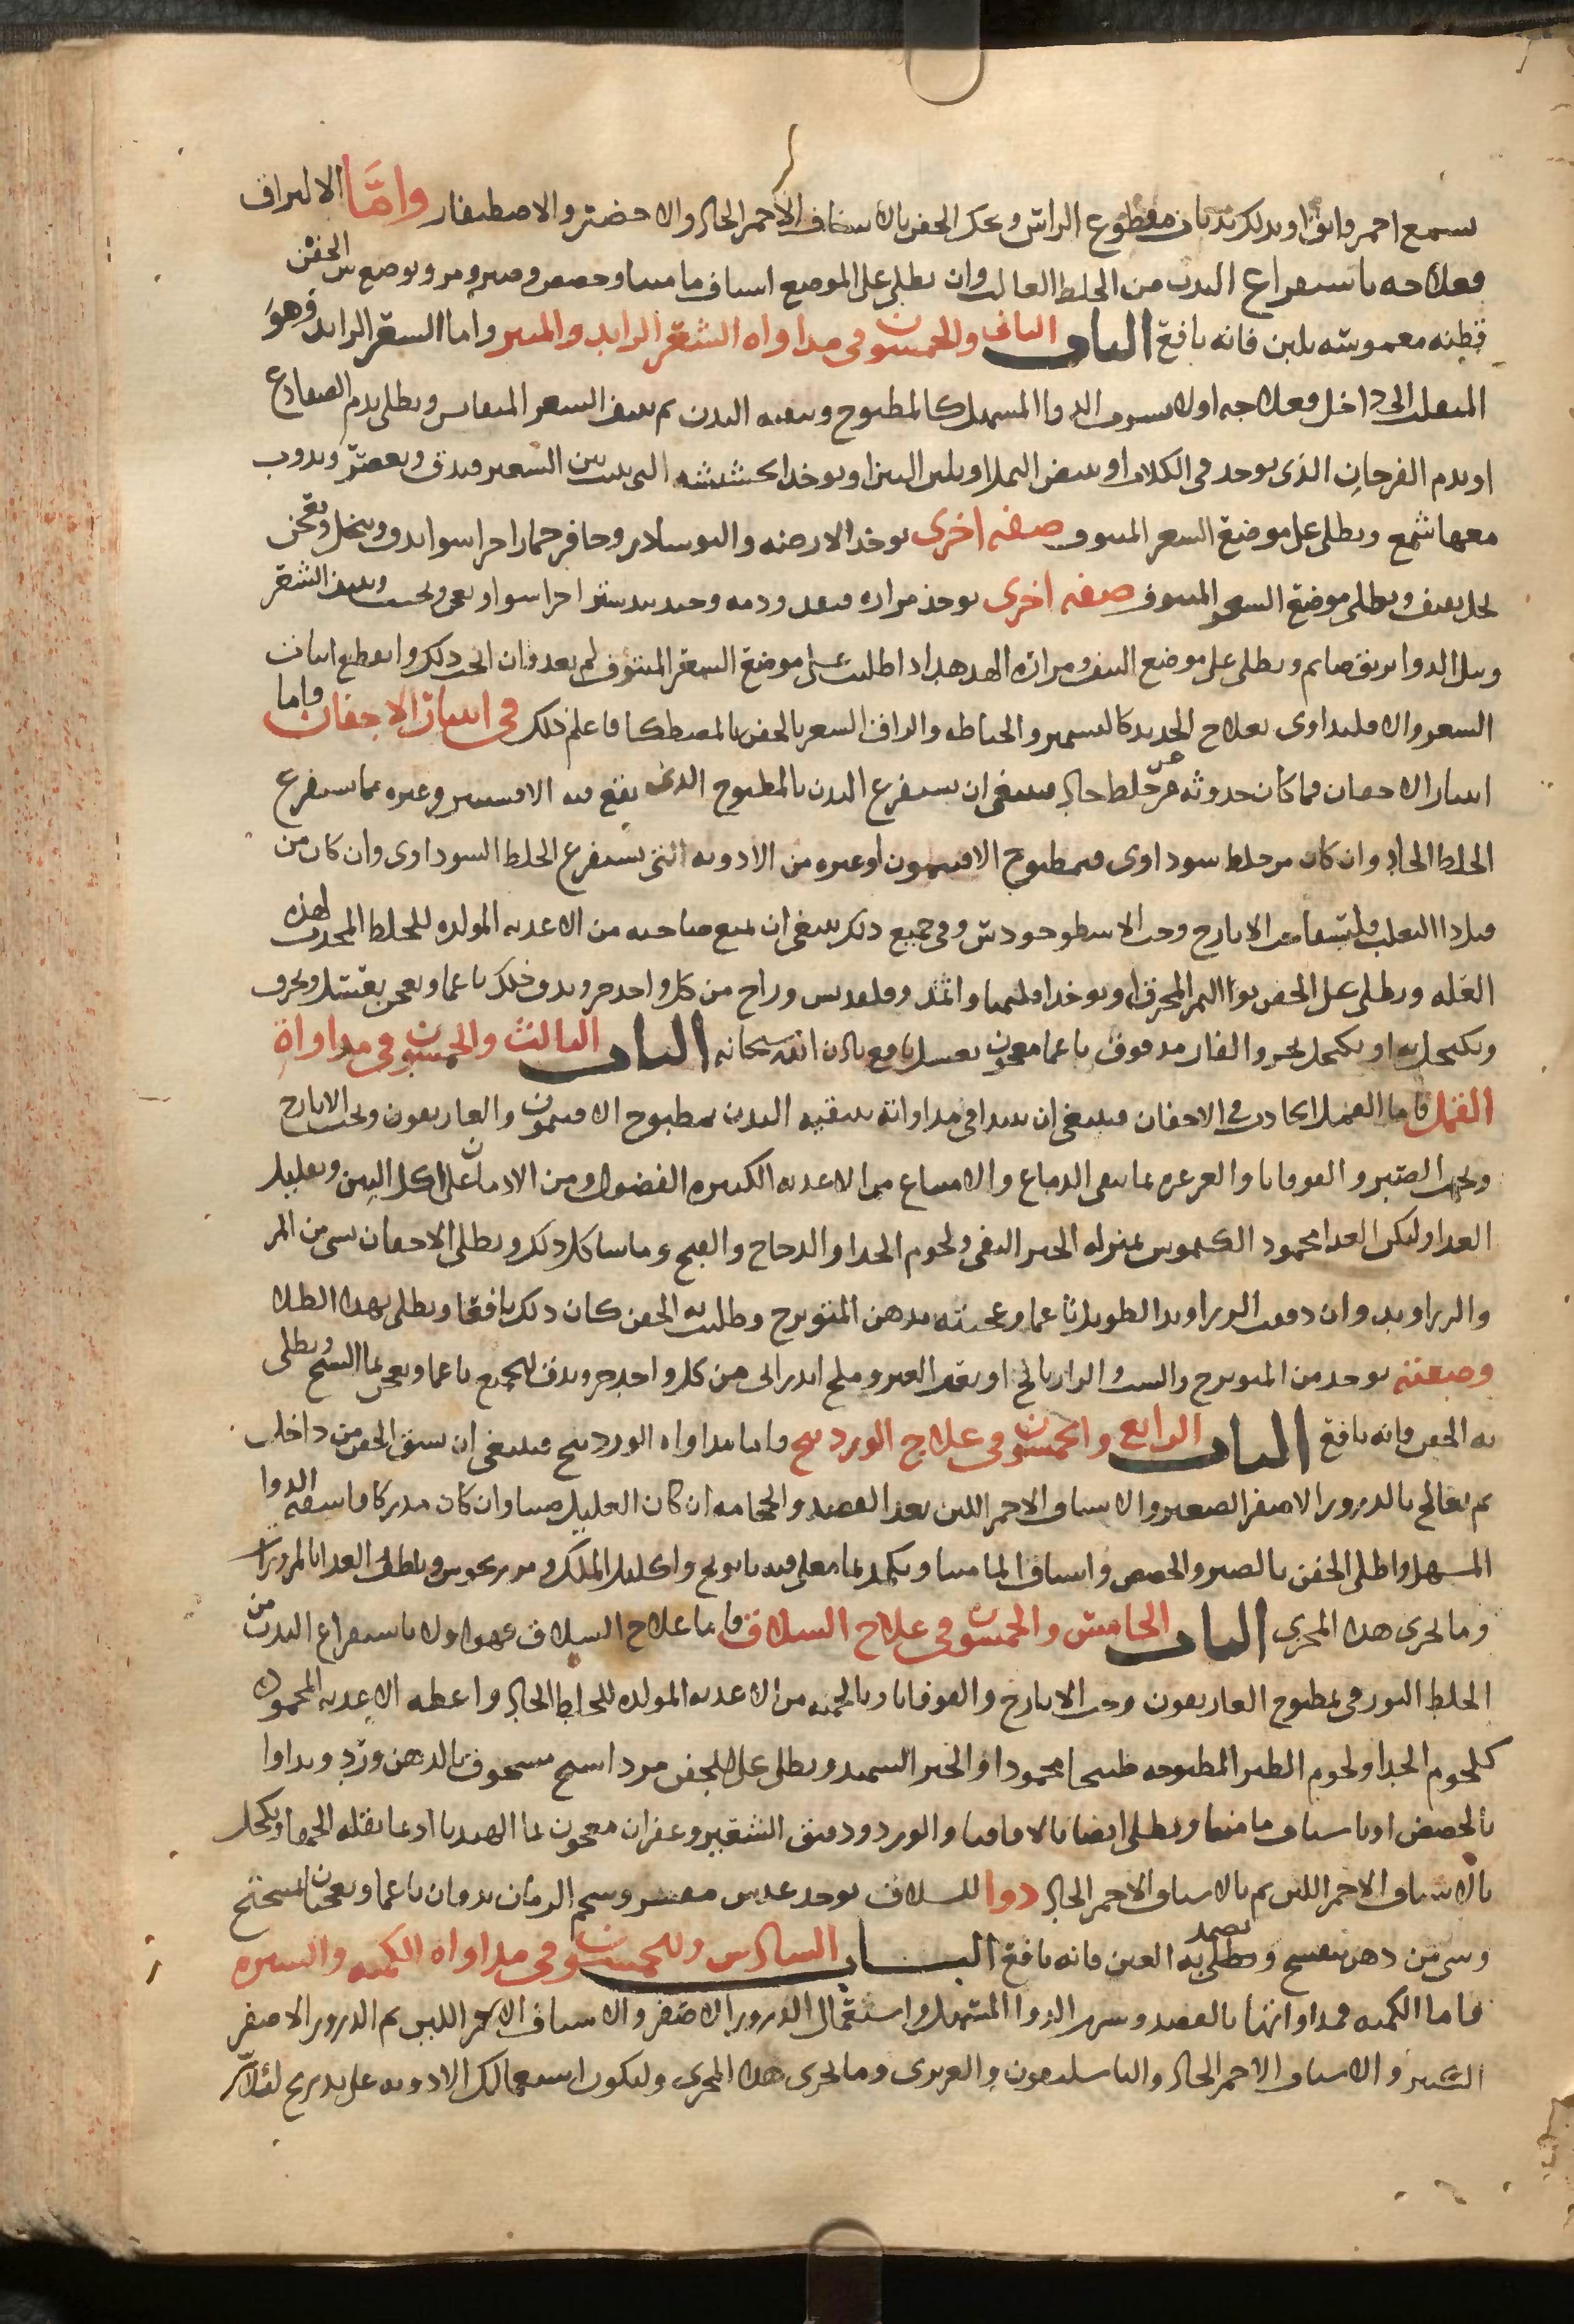 بشمع احمر فاترا ويدلك بذباب مقطوع الراس ويحك الجفن بالاشياف الاحمر الحاد والاخضر والاصطفطار واما الالتزاق
فعلاجه باستفراغ البدن من الخلط الغالب وان يطلى على الموضع اشياف ماميثا وحضض وصبر ومر ويوضع بين الجفن
قطنه مغموسه بلبن فانه نافع الباب الثانى والخمسون فى مداواه الشعر الزايد والمنتثر واما الشعر الزايد وهو
المنقلب الى داخل فعلاجه اولا بشرب الدوا المسهل كالمطبوخ وتنقيه البدن ثم ينتف الشعر المنقلب ويطلى بدم الضفادع
او بدم القرادان الذى يوجد فى الكلاب او ببيض النمل او بلبن التين او يوخذ الحشيشه التى تنبت بين الشعير فيدق ويعصر ويدوب
معها شمع ويطلى على موضع الشعر المنتوف صفه اخرى يوخذ الارضه والنوشادر وحافر حمار اجزا سوا يدق وينخل ويعجن
بخل ثقيف ويطلى موضع الشعر المنتوف صفه اخرى يوخذ مراره قنفذ ودمه وجندبيدستر اجزا سوا ويعجن ويحبب وينتف الشعر
ويبل الدوا بريق صايم ويطلى على موضع النتف ومراره الهدهد اذا طليت على موضع الشعر المنتوف لم يعد فان انجح ذلك وانقطع انبات
الشعر والا فليداوى بعلاج الحديد كالتشمير والخياطه والزاق الشعر بالجفن بالمصطكا فاعلم ذلك فى انتثار الاجفان واما
انتثار الاجفان فما كان حدوثه عن خلط حاد فينبغى ان يستفرغ البدن بالمطبوخ الذى يقع فيه الافسنتين وغيره مما يستفرغ
الخلط الحاد وان كان من خلط سوداوى فبمطبوخ الافتيمون او غيره من الادويه التى تستفرغ الخلط السوداوى وان كان من
قبل دا الثعلب فليسقا حب الايارج وحب الاسطوخودس وفى جميع ذلك ينبغى ان يمنع صاحبه من الاغذيه المولده للخلط المحدث لهذه
العله ويطلى على الجفن نوا التمر المحرق او يوخذ اقليميا واثمد وقلقديس وزاج من كل واحد جزو يدق ذلك ناعما ويعجن بعسل ويحرق
ويكتحل به او يكتحل بخرو الفار مدقوق ناعما معجون بعسل نافع باذن الله سبحانه الباب الثالث والخمسون فى مداواة
القمل فاما القمل الحادث فى الاجفان فينبغى ان يبدا فى مداواته بتنقيه البدن بمطبوخ الافتيمون والغاريقون وبحب الايارج
وبحب الصبر والقوقايا والغرغره بما ينقى الدماغ والامتناع من الاغذيه الكثيره الفضول ومن الادمان على اكل التين وتقليل
الغدا وليكن الغدا محمود الكيموس بمنزله الخبز النقى ولحوم الجدا والدجاج والقبج وما شاكل ذلك ويطلى الاجفان بشى من المر
والزراوند وان دققت الزراوند الطويل ناعما وعجنته بدهن الميويزج وطليت به الجفن كان ذلك نافعا ويطلى بهذا الطلا
وصفته يوخذ من الميويزج والشب الزاربالخ او بعر العير وملح اندرانى من كل واحد جزو يدق الجميع ناعما ويعجن بما الشيح ويطلى
به الجفن فانه نافع الباب الرابع والخمسون فى علاج الوردينج واما مداواه الوردينج فينبغى ان يشق الجفن من داخل
ثم يعالج بالذرور الاصفر الصغير والاشياف الاحمر اللين بعد الفصد والحجامه ان كان العليل صبيا وان كان مدركا فاسقه الدوا
المسهل واطلى الجفن بالصبر والحضض واشياف الماميثا ويكمد بما مغلى فيه بابونج واكليل الملك ومرزنجوش وتلطف الغدا بالمزورات
وما يجرى هذا المجرى الباب الخامس والخمسون فى علاج السلاق فاما علاج السلاق فهو اولا باستفراغ البدن من
الخلط البورقى بمطبوخ الغاريقون وحب الايارج والقوقايا وبالحميه من الاغذيه المولده للخلط الحاد واعطه الاغذيه المحموده
كلحوم الجدا ولحوم الطير المطبوخه طبيخا محمودا والخبز السميد ويطلى على الجفن مرداسنج مسحوق بالدهن ورد ويداوا
بالحضض او باشياف ماميثا ويطلى ايضا بالاقاقيا والورد ودقيق الشعير وزعفران معجون بما الهندبا او بما بقله الحمقا ويكحل
بالاشياف الاحمر اللين ثم بالاشياف الاحمر الحاد دوا للسلاق يوخذ عدس مقشر وشحم الرمان يدقان ناعما ويعجنان بميبختج
وشى من دهن بنفسج ويضمد به العين فانه نافع البــــاب السادس والخمسون فى مداواه الكمنه والشتره
فاما الكمنه فمداواتها بالفصد وشرب الدوا المسهل واستعمال الذرور الاصفر والاشياف الاحمر اللين ثم الذرور الاصفر
الكبير والاشياف الاحمر الحاد والباسليقون والعزيزى وما يجرى هذا المجرى وليكون استعمالك الادويه على تدريج لئلا